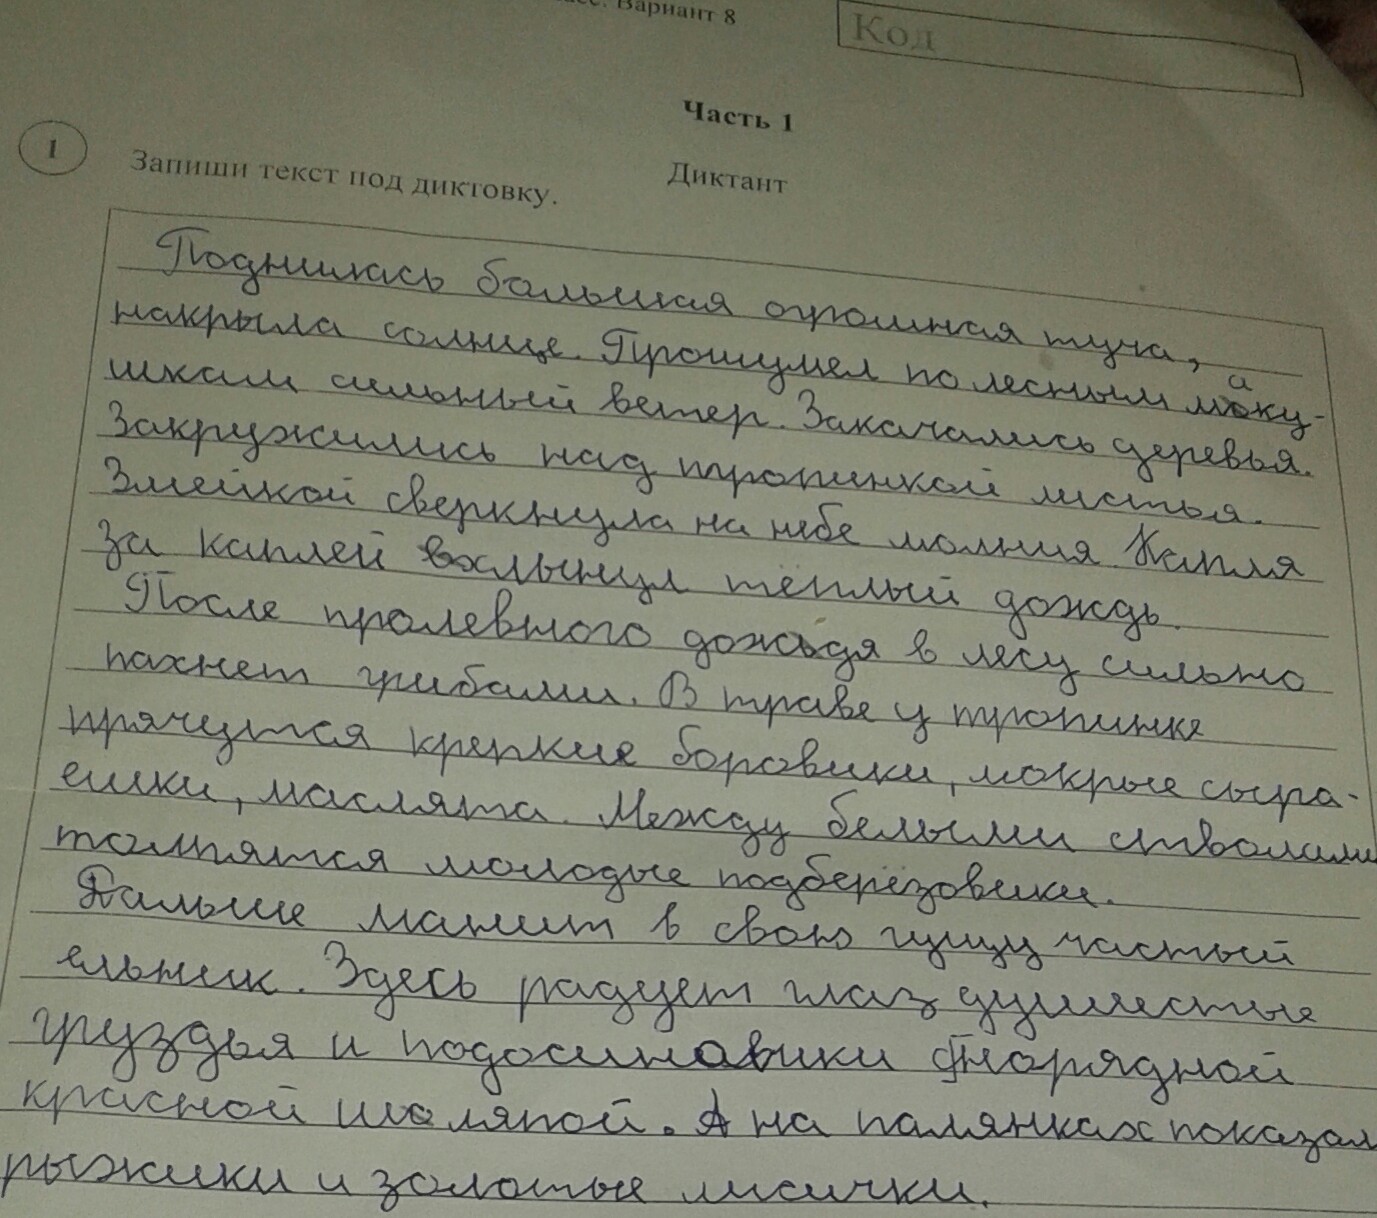 Вариант 8
Код
Часть 1
1
Запиши текст под диктовку.
Диктант
Поднилась большая огромная туча,
накрыла солнце. Прошумел по лесным маку-
шкам сильный ветер. Закачались деревья.
Закружились над тропинкой листья.
Змейкой сверкнула на небе молния. Капля
за каплей вхлынул тёплый дождь.
После пролевного дождя в лесу сильно
пахнет грибами. В траве у тропинке
прячутся крепкие боровики, мокрые сыра-
ешки, маслята. Между белыми стволами
толпятся молодые подберёзовики.
Дальше манит в свою гущу частый
ельник. Здесь радует глаз душистые
груздья и подосиновики снорядной
красной шаляпой. А на палянках показал
рыжики и золотые лисички.